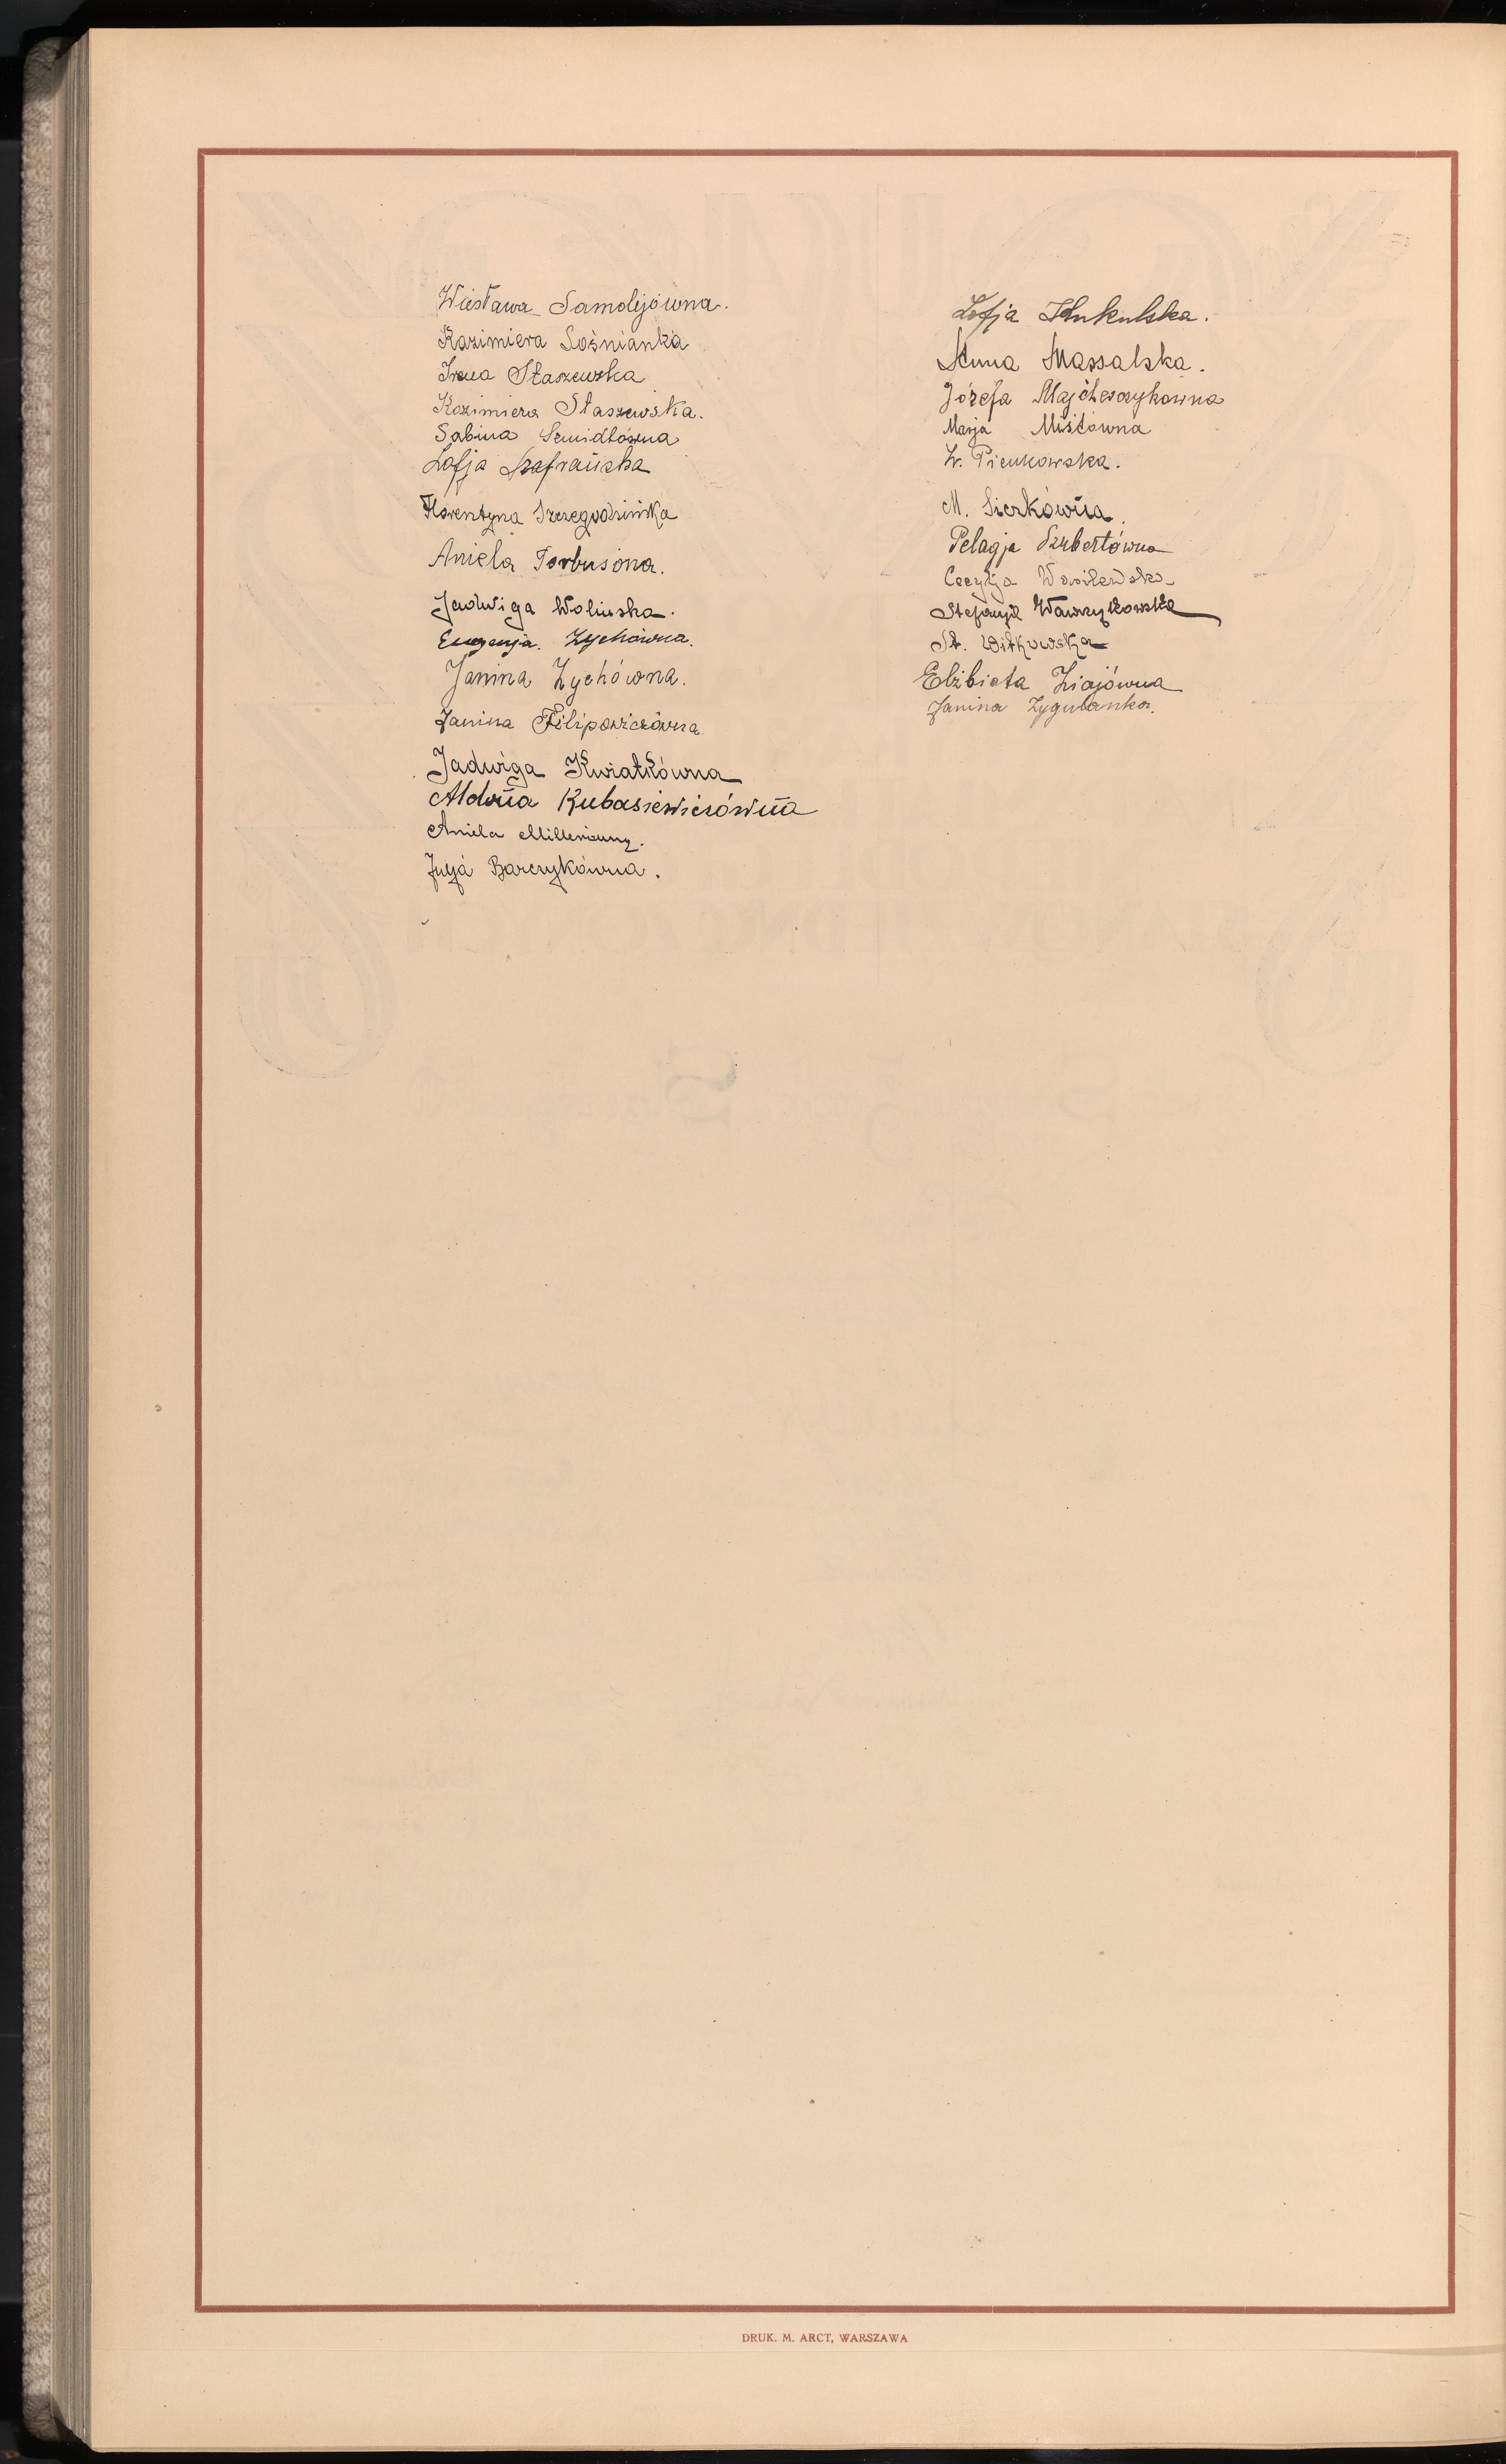 Wiesława Samolejówna.
Kazimiera Sośnianka
Irena Staszewska
Kazimiera Staszewska.
Sabina Szmidtówna
Zofja Szafrańska
Florentyna Szczegodzińska
Aniela Torbusiona.
Jadwiga Wolińska.
Eugenja. Zychówna.
Janina Zychówna.
Janina Filipowiczówna
Jadwiga Kwiatkówna
Aldona Kubasiewiczówna
Aniela
Julja Barczykówna.
Zofja Kukulska.
Anna Massalska.
Józefa Majcherczykówna
Marja Miśtówna
Pieńkowska.
M. Sierkówna.
Pelagja Szubertówna
Cecylja Wasilewska
Stefanja Wawrzykowska
St. Witkowska
Elżbieta Ziajówna
Janina Zygulanka.
DRUK. M. ARCT, WARSZAWA